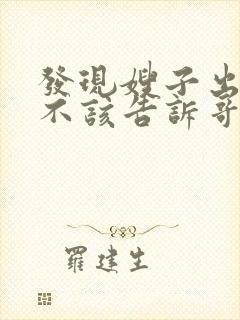 發現嫂子出
不該告訴哥
羅建生